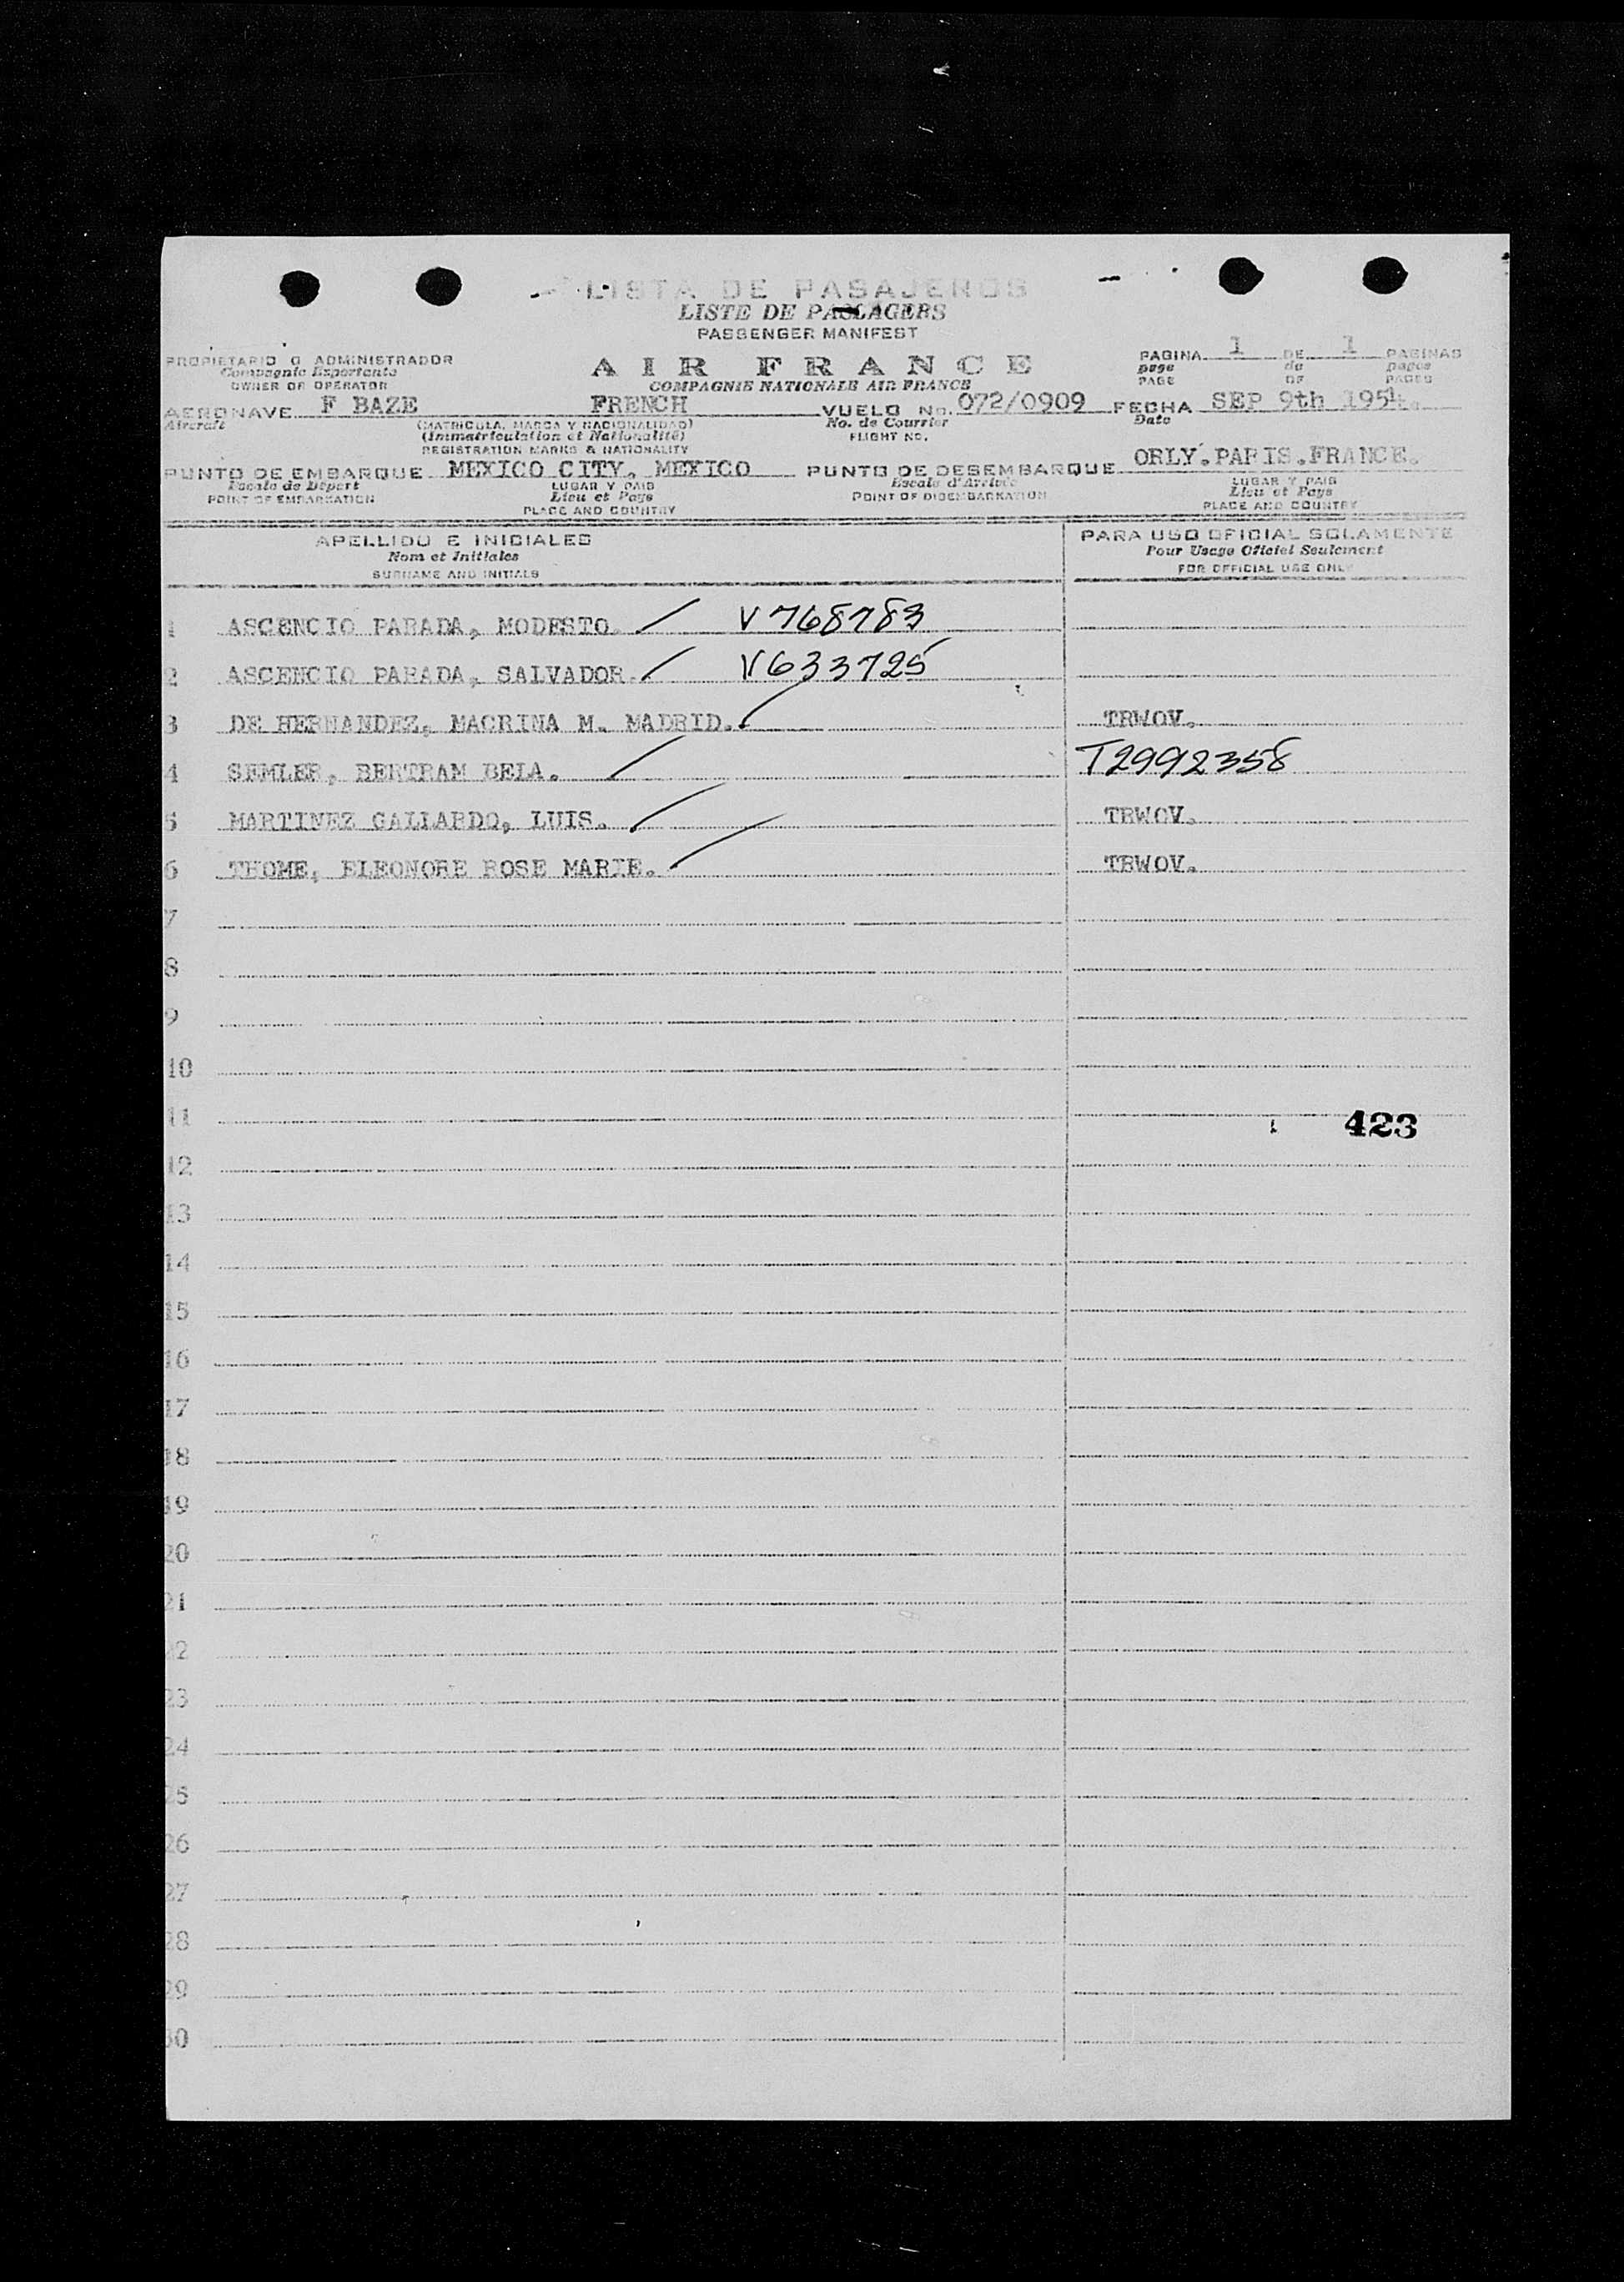 LISTA DE PASAJEROS
LISTE DE PASSAGERS
PASSENGER MANIFEST
PROPIETARIO O ADMINISTRADOR
Compagnie Exportante
OWNER OR OPERATOR
AIR FRANCE
COMPAGNIE NATIONALE AIR FRANCE
PAGINA 1 DE 1 PAGINAS
page de pages
PAGE OF PAGES
AERONAVE F BAZE FRENCH VUELO No. 072/0909 FECHA SEP 9th 1954.
Aircraft (MATRICULA, MARCA Y NACIONALIDAD) No. de Courrier Date
(Immatriculation et Nationalité) FLIGHT NO.
REGISTRATION MARKS & NATIONALITY
PUNTO DE EMBARQUE MEXICO CITY, MEXICO PUNTO DE DESEMBARQUE ORLY.PARIS.FRANCE.
Escale de Départ LUGAR Y PAIS Escale d'Arrivée LUGAR Y PAIS
POINT OF EMBARKATION Lieu et Pays POINT OF DISEMBARKATION Lieu et Pays
PLACE AND COUNTRY PLACE AND COUNTRY
APELLIDO E INICIALES PARA USO OFICIAL SOLAMENTE
Nom et Initiales Pour Usage Officiel Seulement
SURNAME AND INITIALS FOR OFFICIAL USE ONLY
1 ASCENCIO PARADA, MODESTO. V768783
2 ASCENCIO PARADA, SALVADOR. V633725
3 DE HERNANDEZ, MACRINA M. MADRID. TRWOV.
4 SEMLER, BERTRAM BELA. T2992358
5 MARTINEZ GALLARDO, LUIS. TRWOV.
6 THOME, ELEONORE ROSE MARIE. TRWOV.
7
8
9
10
11 423
12
13
14
15
16
17
18
19
20
21
22
23
24
25
26
27
28
29
30